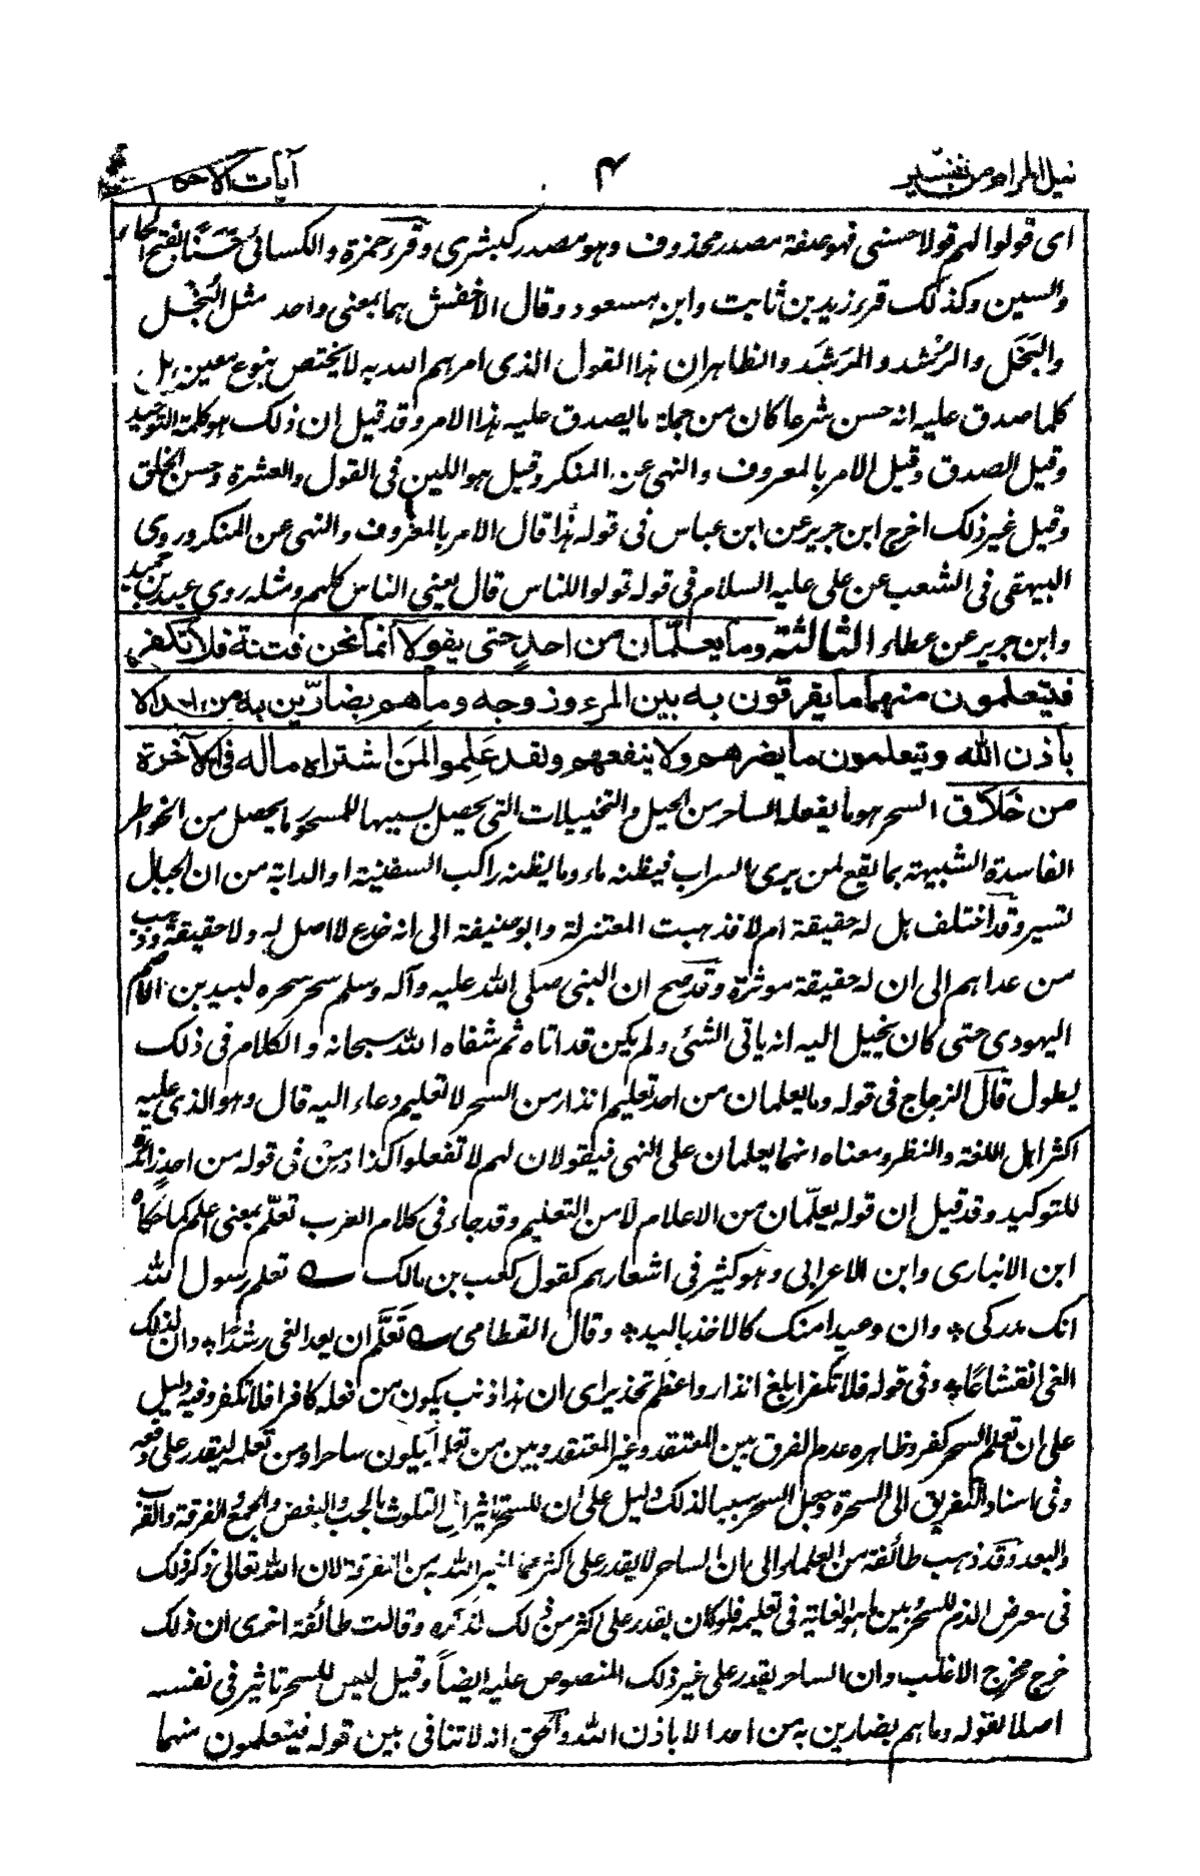 نيل المرام من تفسير ۴ آيات الاحكام
اى قولوا لهم قولا حسنى فهو صفة مصدر محذوف وهو مصدر كبشرى وقرء حمزة والكسائى حَسَنًا بفتح الحاء
والسين وكذلك قرء زيد بن ثابت وابن مسعود وقال الاخفش هما بمعنى واحد مثل البُخل
والبَخَل والرُشد والرَشَد والظاهر ان هذا القول الذى امرهم الله به لا يختص بنوع معين بل
كلما صدق عليه انه حسن شرعا كان من جملة ما يصدق عليه هذا الامر وقد قيل إن ذلك هو كلمة التوحيد
وقيل الصدق وقيل الامر بالمعروف والنهى عن المنكر وقيل هو اللين فى القول والعشرة وحسن الخلق
وقيل غير ذلك اخرج ابن جرير عن ابن عباس فى قوله هذا قال الامر بالمعروف والنهى عن المنكر وروى
البيهقى فى الشعب عن على عليه السلام فى قوله قولوا للناس قال يعنى الناس كلهم ومثله روى عبد بن حميد
وابن جرير عن عطاء الثالثة وما يعلّمان من احدٍ حتى يقولا انما نحن فتنة فلا تكفر
فيتعلمون منهما ما يفرقون به بين المرء وزوجه وما هم بضارّين به من احد الا
باذن الله ويتعلمون ما يضرهم ولا ينفعهم ولقد عَلِموا لمَن اشتراه ما له فى الآخرة
من خَلاق السحر هو ما يفعله الساحر من الحيل والتخييلات التى يحصل بسببها للمسحور ما يحصل من الخواطر
الفاسدة الشبيهة بما يقع لمن يرى السراب فيظنه ماء وما يظنه راكب السفينة او الدابة من ان الجبال
تسير وقد اختلف هل له حقيقة ام لا فذهبت المعتزلة وابو حنيفة الى انه خدع لا اصل له ولا حقيقة وذهب
من عداهم الى ان له حقيقة موثرة وقد صح ان النبى صلى الله عليه وآله وسلم سحر سحره لبيد بن الاعصم
اليهودى حتى كان يخيل اليه انه ياتى الشئ ولم يكن قد اتاه ثم شفاه الله سبحانه والكلام فى ذلك
يطول قال الزجاج فى قوله وما يعلمان من احد تعليم انذار من السحر لا تعليم دعاء اليه قال وهو الذى عليه
اكثر اهل اللغة والنظر ومعناه انهما يعلمان على النهى فيقولان لهم لا تفعلوا كذا ومِنْ فى قوله من احدٍ زائدة
للتوكيد وقد قيل إن قوله يعلّمان من الاعلام لا من التعليم وقد جاء فى كلام العرب تعلّم بمعنى اعلم كما حكاه
ابن الانبارى وابن الاعرابى وهو كثير فى اشعارهم كقول كعب بن مالك ؎ تعلم رسول الله
انك مدركى * وان وعيدا منك كالاخذ باليد * وقال القطامى ؎ تَعَلَّم ان بعد الغى رشدًا * وان لذلك
الغى انقشاعًا * وفى قوله فلا تكفر ابلغ انذار واعظم تحذير اى ان هذا ذنب يكون من فعله كافرا فلا تكفر وفيه دليل
على ان تعلم السحر كفر وظاهره عدم الفرق بين المعتقد وغير المعتقد وبين من تعلمه ليكون ساحرا ومن تعلمه ليقدر على دفعه
وفى اسناد التفريق الى السحرة وجعل السحر سببا لذلك دليل على ان للسحر تاثيرا فى القلوب بالحب والبغض والجمع والفرقة والقرب
والبعد وقد ذهب طائفة من العلماء الى ان الساحر لا يقدر على اكثر مما اخبر الله به من التفرقة لان الله تعالى ذكر ذلك
فى معرض الذم للسحر وبين ما هو الغاية فى تعليمه فلو كان يقدر على اكثر من ذلك لذكره وقالت طائفة اخرى ان ذلك
خرج مخرج الاغلب وان الساحر يقدر على غير ذلك المنصوص عليه ايضاً وقيل ليس للسحر تاثير فى نفسه
اصلا لقوله وما هم بضارين به من احد الا باذن الله والحق انه لا تنافى بين قوله فيتعلمون منهما